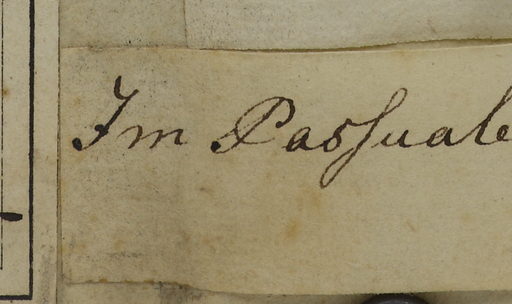 Im Pasquale